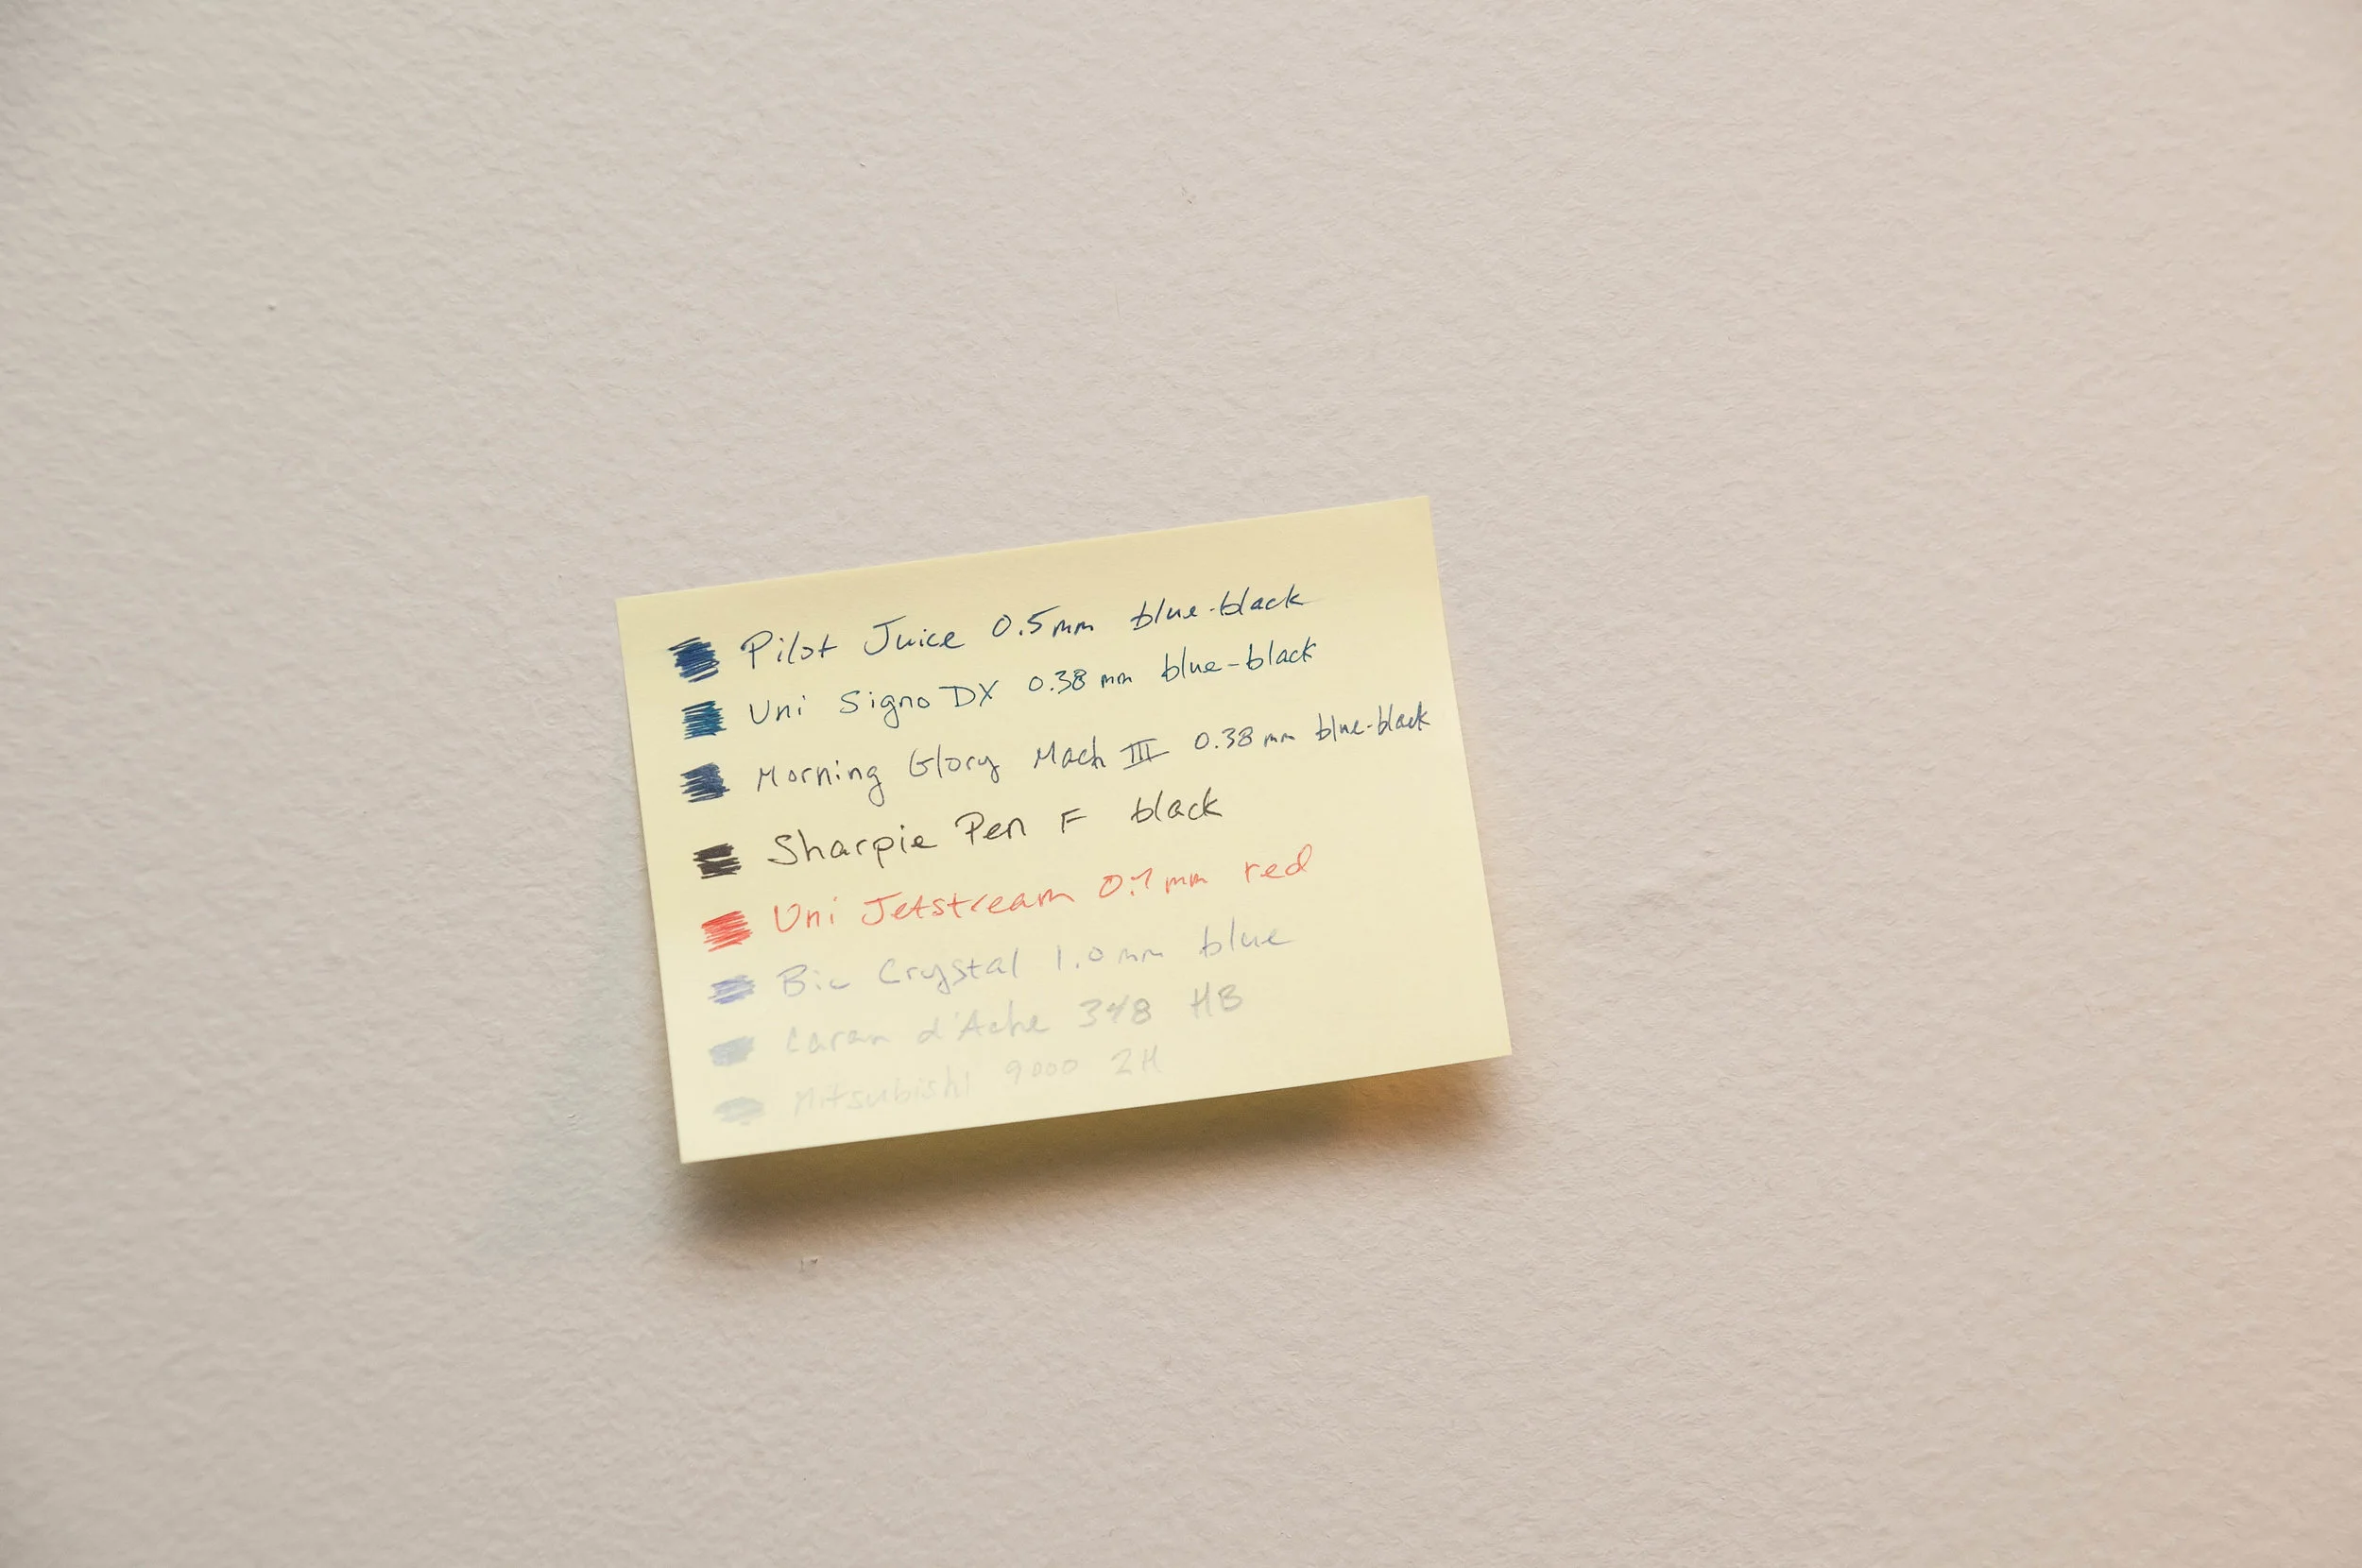 Pilot Juice 0.5mm blue-black
Uni Signo DX 0.38 mm blue-black
Morning Glory Mach III 0.38 mm blue-black
Sharpie Pen F black
Uni Jetstream 0.7mm red
Bic Crystal 1.0 mm blue
Caran d'Ache 348 HB
Mitsubishi 9000 2H